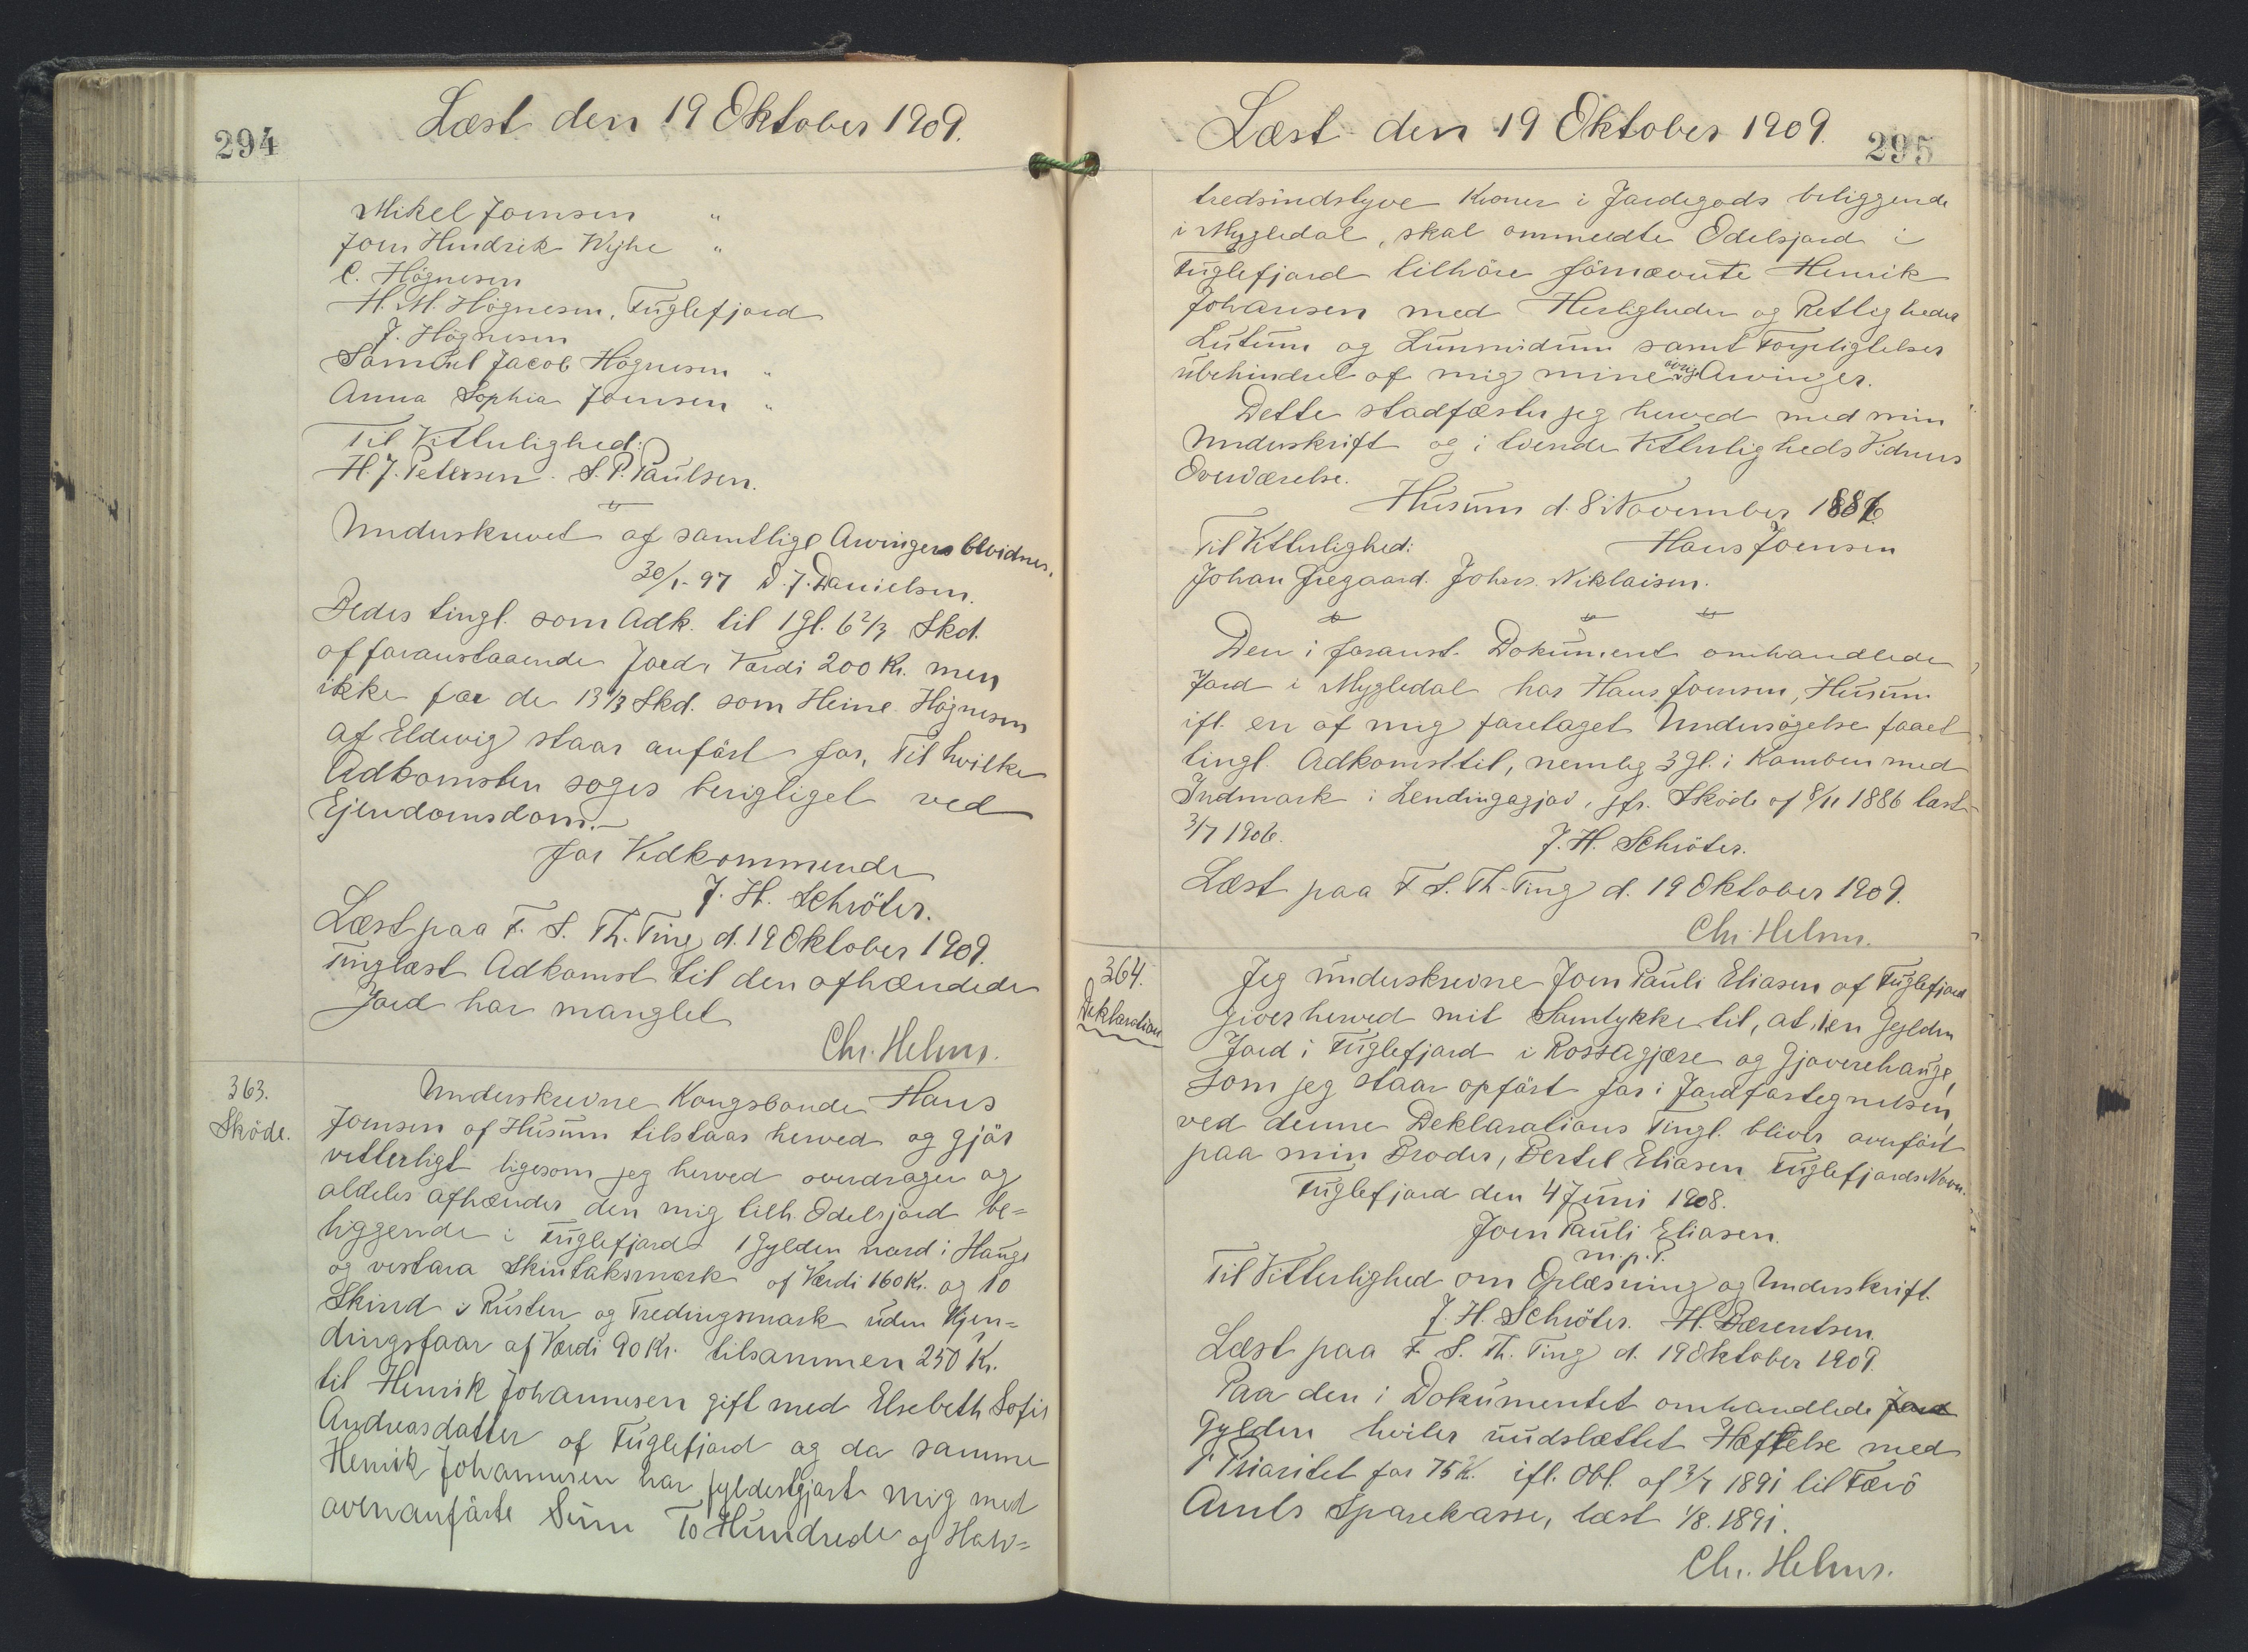 294
Læst den 19 Oktober 1909.
Mikel Joensen "
Joen Hendrik Wejhe "
C. Högnesen
H. M. Högnesen, Fuglefjord
J. Högnesen
Samuel Jacob Högnesen "
Anna Sophia Joensen "
Til Vitterlighed:
H. J. Petersen. S. P. Paulsen.
Underskrevet af samtlige Arvinger bevidnes.
30/1-97 D. J. Danielsen.
Bedes tingl. som Adk. til 1 Gl. 6 2/3 Skd.
af foranstaaende Jord, Værdi 200 Kr. men
ikke for de 13 1/3 Skd. som Heine Högnesen
af Eldevig staar anfört for, til hvilke
Adkomsten soges berigtiget ved
Ejendomsdom.
For Vedkommende
J. H. Schröter.
Læst paa F. S. Th. Ting d. 19 Oktober 1909.
Tinglæst Adkomst til den afhændede
Jord har manglet
Chr. Helms.
363.
Sköde.
Underskrevne Kongsbonde Hans
Joensen af Husum tilstaar herved og gjör
vitterligt ligesom jeg herved overdrager og
aldeles afhænder den mig tilh. Odelsjord be=
liggende i Fuglefjord 1 Gylden nord i Hauge
og vestara Skintaksmark af Værdi 160 Kr. og 10
Skind i Rusten og Tredingsmark uden Kjen=
dingsfaar af Værdi 90 Kr. tilsammen 250 Kr.
til Henrik Johannesen gift med Elsebeth Sofie
Andreasdatter af Fuglefjord og da samme
Henrik Johannesen har fyldestgjort mig med
ovenanförte Sum To Hundrede og Halv=
Læst den 19 Oktober 1909.
295
tredsindstyve Kroner i Jordegods beliggende
i Mygledal, skal ommeldte Odelsjord i
Fuglefjord tilhöre förnævnte Henrik
Johansen med Herligheder og Rettigheder
Lutum og Lunnindum samt Forpligtelser
ubehindret af mig mine övrige Arvinger.
Dette stadfæster jeg herved med min
Underskrift og i tvende Vitterligheds Vidners
Overværelse.
Husum d. 8 November 1886
Til Vitterlighed: Hans Joensen
Johan Öregaard. Johs. Niklaisen.
Den i foranst. Dokument omhandlede
Jord i Mygledal har Hans Joensen, Husum
ifl. en af mig foretaget Undersögelse faaet
tingl. Adkomst til, nemlig 3 Gl. i Komben med
Indmark i Lendingagjov, jfr. Sköde af 8/11 1886 læst
3/7 1906.
J. H. Schröter.
Læst paa F. S. Th-Ting d. 19 Oktober 1909.
Chr. Helms.
364.
Deklaration
Jeg underskrevne Joen Pauli Eliasen af Fuglefjord
giver herved mit Samtykke til, at 1 en Gylden
Jord i Fuglefjord i Rossagjære og Gjoverehauge,
som jeg staar opfört for i Jordfortegnelsen,
ved denne Deklarations Tingl. bliver overfört
paa min Broder, Bertel Eliasen Fuglefjords Navn.
Fuglefjord den 4 Juni 1908.
Joen Pauli Eliasen.
m. p. P.
Til Vitterlighed om Oplæsning og Underskrift.
J. H. Schröter. H. Bærentsen.
Læst paa F. S. Th. Ting d. 19 Oktober 1909.
Paa den i Dokumentet omhandlede Jord
Gylden hviler uudslettet Hæftelse med
1 Prioritet for 75 K. ifl. Obl. af 3/7 1891 til Færö
Amts Sparekasse, læst 1/8. 1891.
Chr. Helms.